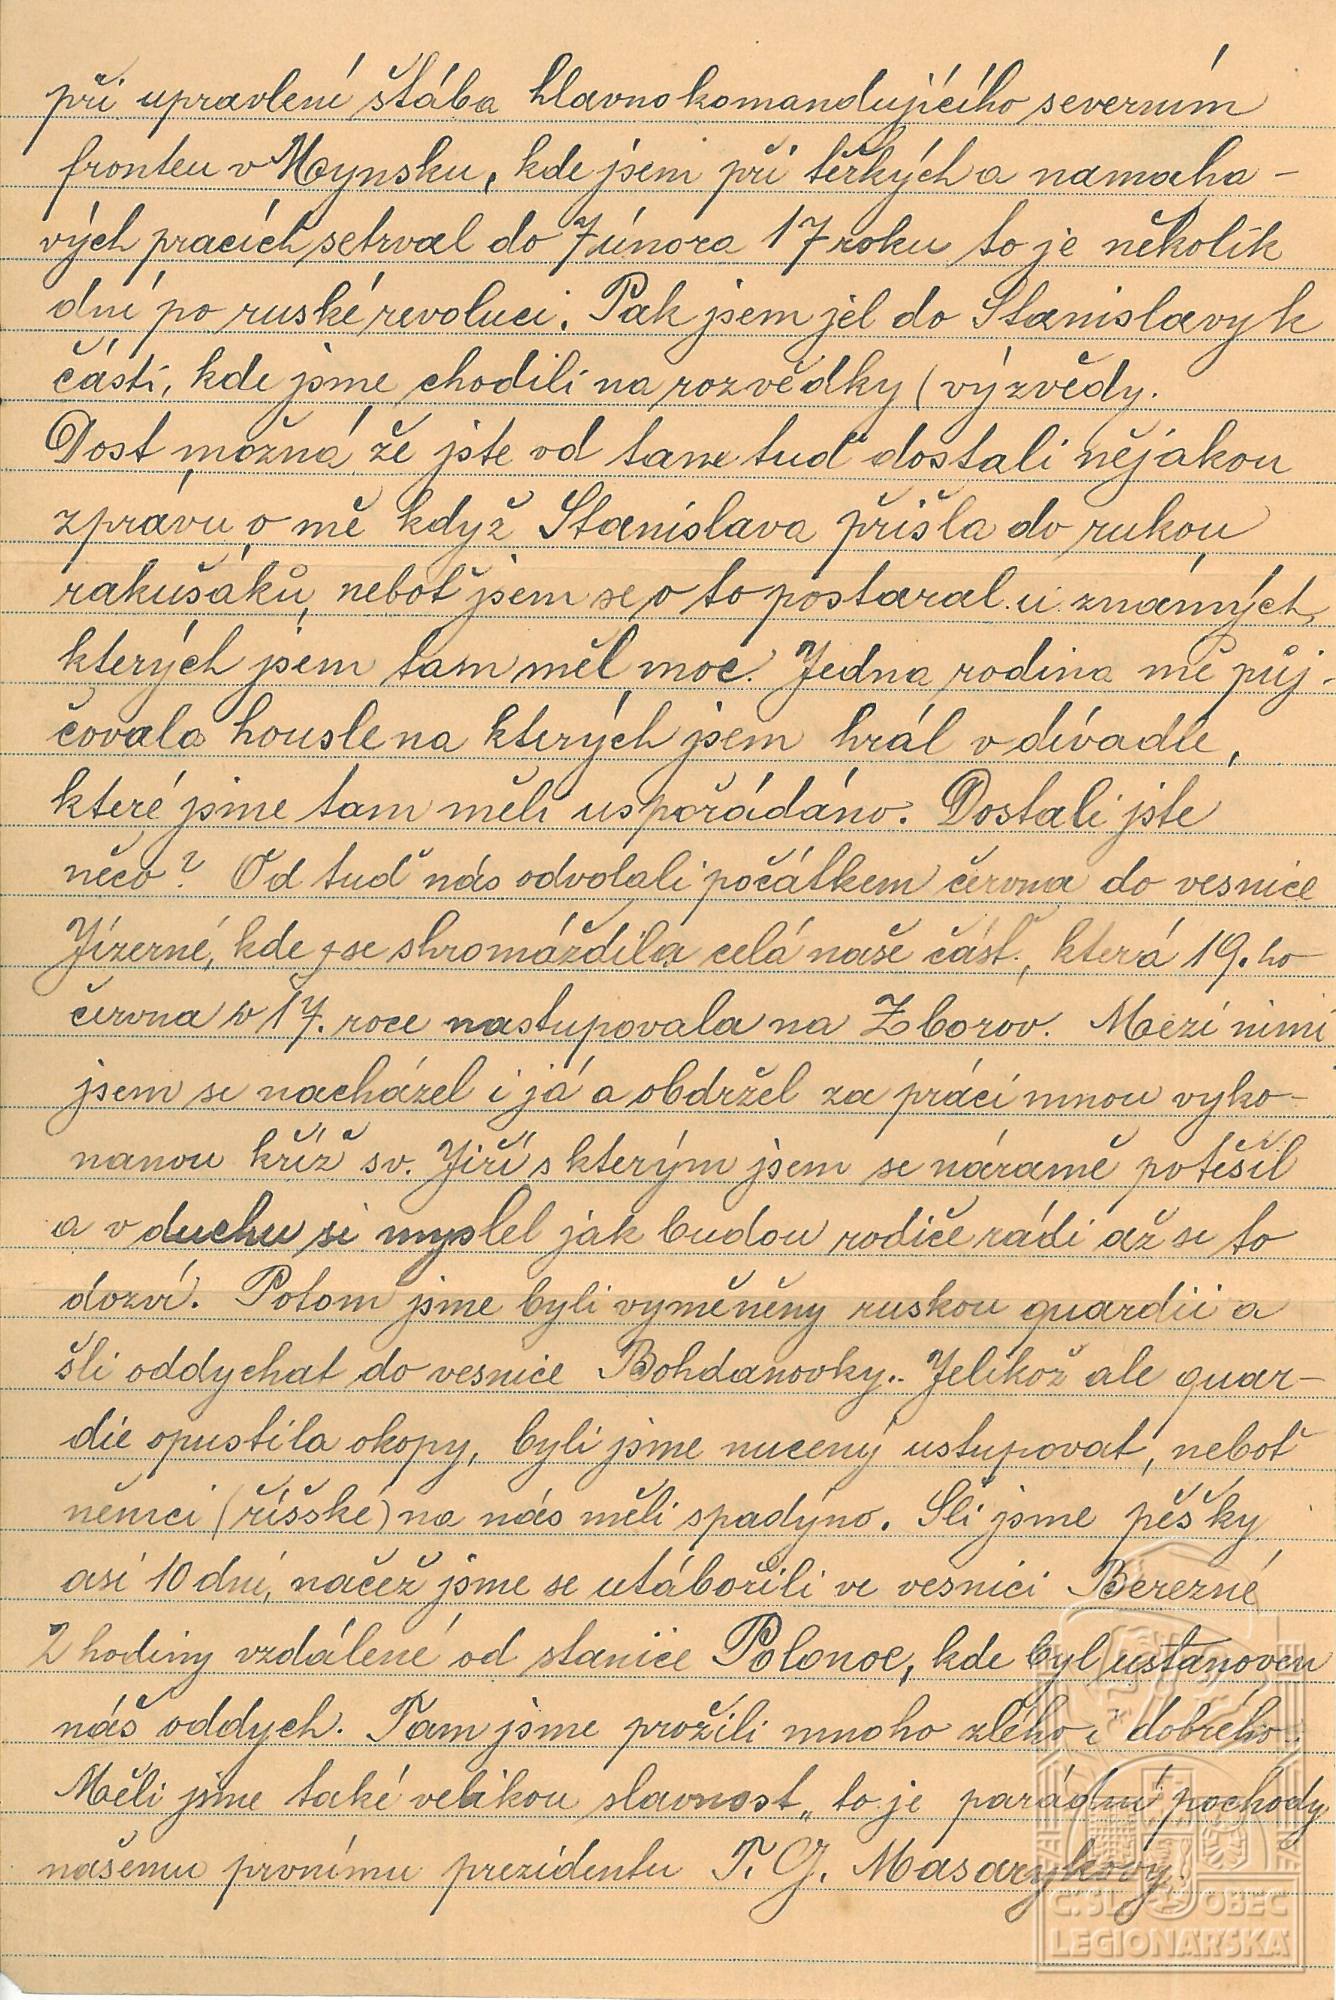 při upravlení štába hlavnokomandujícího severním
fronteu v Moynsku, kde jsem při těžkých a namaha-
vých pracích setrval do 7 února 17 roku to je několik
dní po ruské revoluci. Pak jsem jel do Stanislavy k
části, kde jsme chodili na rozvědky (výzvědy.
Dost možná že jste od tam tuď dostali nějakou
zprávu o mě když Stanislava přišla do rukou
rakušáků, neboť jsem se o to postaral u známých,
kterých jsem tam měl moc. Jedna rodina mě půj-
čovala housle na kterých jsem hrál v divadle,
které jsme tam měli uspořádáno. Dostali jste
něco? Od tuď nás odvolali počátkem června do vesnice
Jízerné, kde se shromáždila celá naše část, která 19. ho
června v 17. roce nastupovala na Zborov. Mezi nimi
jsem se nacházel i já a obdržel za práci mnou vyko-
nanou kříž sv. Jiří s kterým jsem se náramě potěšil
a v duchu si myslel jak budou rodiče rádi až se to
dozví. Potom jsme byli vyměněny ruskou guardii a
šli oddychat do vesnice Bohdanovky.. Jelikož ale guar-
die opustila okopy, byli jsme nuceny ustupovat, neboť
němci (říšské) na nás měli spadýno. Šli jsme pěšky
asi 10 dní, načež jsme se utábořili ve vesnici Berezné
2 hodiny vzdálené od stanice Polonoe, kde byl ustanoven
náš oddych. Tam jsme prožili mnoho zlého i dobrého.
Měli jsme také velikou slavnost, to je parádní pochody
našemu prvnímu prezidentu T. G. Masarykovy.
Č.SL. OBEC
LEGIONÁŘSKÁ